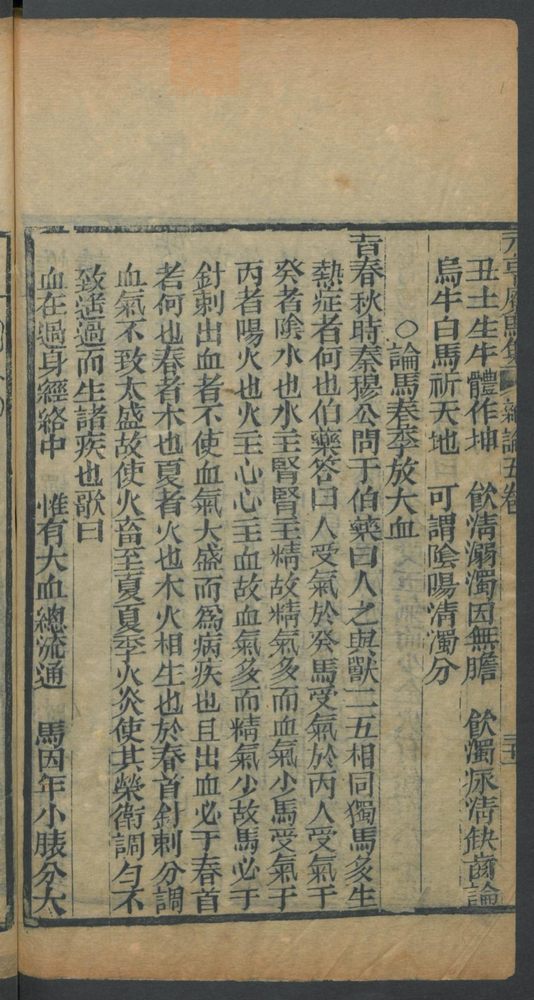 元亨療馬集 雜論五卷
丑土生牛體作坤 飲淸溺濁因無膽 飲濁尿淸缺齒論
烏牛白馬祈天地 可謂陰陽淸濁分
○論馬春季放大血
昔春秋時秦穆公問于伯藥曰人之與獸二五相同獨馬多生
熱症者何也伯藥答曰人受氣於癸馬受氣於丙人受氣于
癸者陰水也水主腎腎主精故精氣多而血氣少馬受氣于
丙者陽火也火主心心主血故血氣多而精氣少故馬必于
針刺出血者不使血氣大盛而爲病疾也且出血必于春首
若何也春者木也夏者火也木火相生也於春首針刺分調
血氣不致太盛故使火畜至夏夏季火炎使其榮衛調勻不
致逴過而生諸疾也歌曰
血在過身經絡中 惟有大血總流通 馬因年小膘分大